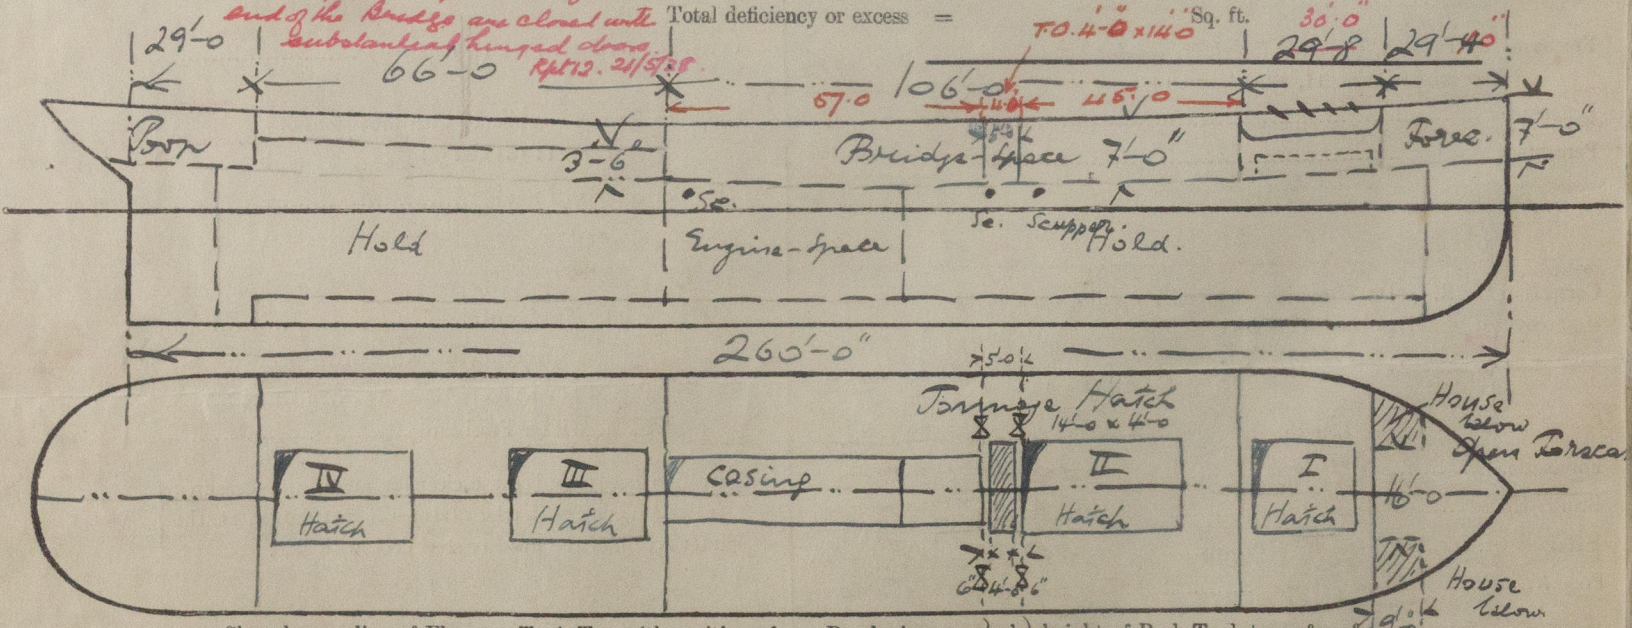 end of the Bridge are closed with
substantial hinged doors.
Rpt 12. 21/5/28
Total deficiency or excess = Sq. ft.
T.O. 4'-0" x 14'0"
30'.0"
29'-0 66'-0 106'-0 29'-8 29'-4
57.0 4.0 45.0
Poop 3'-6" Bridge-Space 7'-0" Forec. 7'-0"
Sc. Sc. Scupper.
Hold Engine-Space Hold.
260'-0"
5'-0
Tonnage Hatch
14'-0 x 4'-0
House
below
Open Foreca
IV III Casing II I
Hatch Hatch Hatch Hatch
16'-0
6" 4'-0 6"
House
below